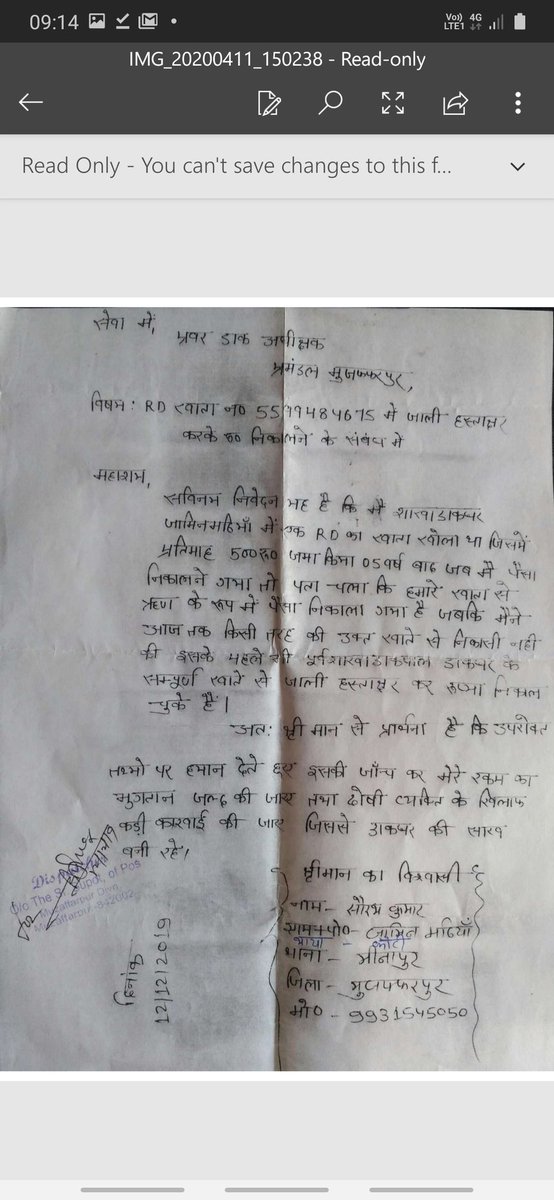 09:14
Vo)) 4G
LTE1
IMG_20200411_150238 - Read-only
Read Only - You can't save changes to this f...
सेवा में,
प्रवर डाक अधीक्षक
प्रमंडल मुजफ्फरपुर,
विषय: RD खाता न० 55199484675 में जाली हस्ताक्षर
करके रु० निकालने के संबंध में
महाशय,
सविनय निवेदन यह है कि मैं शाखा डाकघर
जामिनमठियाँ में एक RD का खाता खोला था जिसमें
प्रतिमाह 500रु० जमा किया 05 वर्ष बाद जब मैं पैसा
निकालने गया तो पता चला कि हमारे खाता से
ऋण के रूप में पैसा निकाला गया है जबकि मैंने
आज तक किसी तरह की उक्त खाते से निकासी नहीं
की इसके पहले भी पूर्व शाखा डाकपाल डाकघर के
सम्पूर्ण खाते से जाली हस्ताक्षर कर रूपया निकाल
चुके हैं।
अत: श्री मान से प्रार्थना है कि उपरोक्त
तथ्यो पर ध्यान देते हुए इसकी जाँच कर मेरे रकम का
भुगतान जल्द की जाए तथा दोषी व्यक्ति के खिलाफ
कड़ी कारवाई की जाए जिससे डाकघर की साख
बनी रहे।
O/o The S Supdt. of Pos
Muzaffarpur Divn.
Muzaffarpur-842002
दिनांक - 12/12/2019
श्रीमान का विश्वासी
नाम - सौरभ कुमार
ग्राम+पो०- जामिन मठियाँ
भाया -
थाना - मीनापुर
जिला - मुजफ्फरपुर
मो० - 9931545050